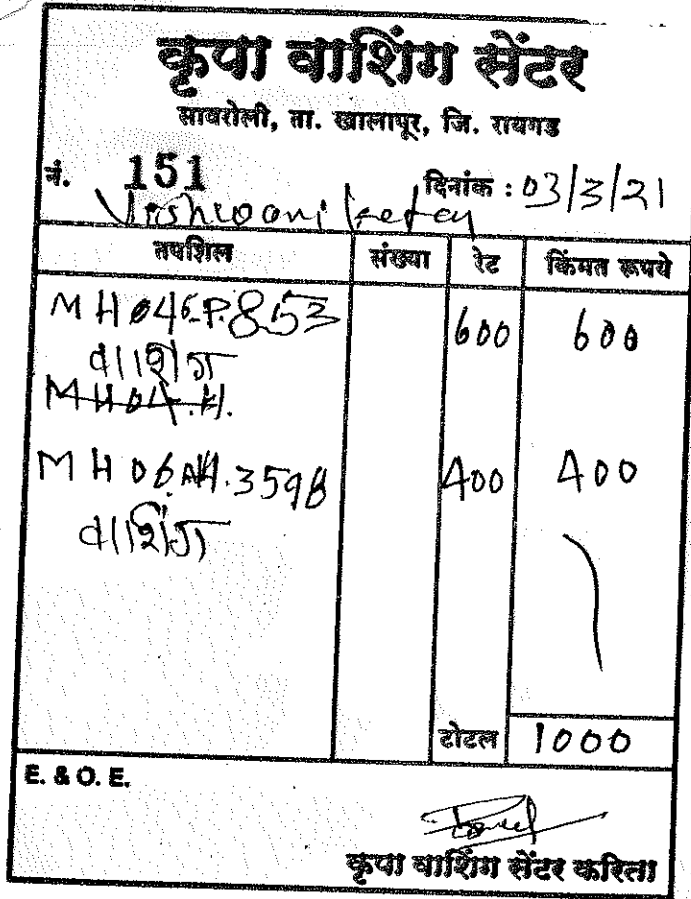 कृपा वाशिंग सेंटर
सावरोली, ता. खालापूर, जि. रायगड
नं. 151 दिनांक : 03/3/21
Vishwaniketan
तपशिल संख्या रेट किंमत रूपये
853 600 600
वाशिंग
MH04.H.
MH06.AH.3598 400 400
वाशिंग
टोटल 1000
E. & O. E.
कृपा वाशिंग सेंटर करिता